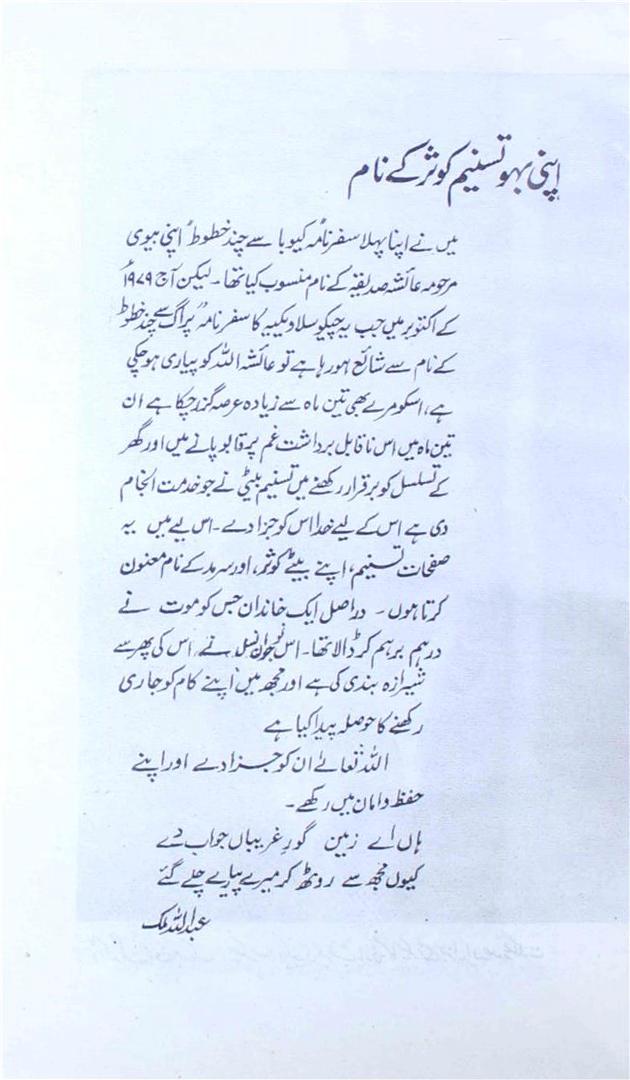 اپنی بہو تسنیم کوثر کے نام
میں نے اپنا پہلا سفرنامہ کیوبا سے چند خطوط" اپنی بیوی
مرحومہ عائشہ صدیقہ کے نام منسوب کیا تھا۔ لیکن آج ۱۹۷۹ء
کے اکتوبر میں جب یہ چیکوسلاویکیہ کا سفرنامہ "پراگ سے چند خطوط
کے نام سے شائع ہو رہا ہے تو عائشہ اللہ کو پیاری ہو چکی
ہے، اسکو مرے بھی تین ماہ سے زیادہ عرصہ گزر چکا ہے ان
تین ماہ میں اس ناقابل برداشت غم پر قابو پانے میں اور گھر
کے تسلسل کو برقرار رکھنے میں تسنیم بیٹی نے جو خدمت انجام
دی ہے اس کے لیے خدا اس کو جزا دے۔ اس لیے میں یہ
صفحات تسنیم، اپنے بیٹے کوثر، اور سرمد کے نام معنون
کرتا ہوں۔ دراصل ایک خاندان جس کو موت نے
درہم برہم کر ڈالا تھا۔ اس نوجوان نسل نے، اس کی پھر سے
شیرازہ بندی کی ہے اور مجھ میں اپنے کام کو جاری
رکھنے کا حوصلہ پیدا کیا ہے
اللہ تعالےٰ ان کو جزا دے اور اپنے
حفظ و امان میں رکھے۔
ہاں اے زمین گورِ غریباں جواب دے
کیوں مجھ سے روٹھ کر میرے پیارے چلے گئے
عبداللہ ملک